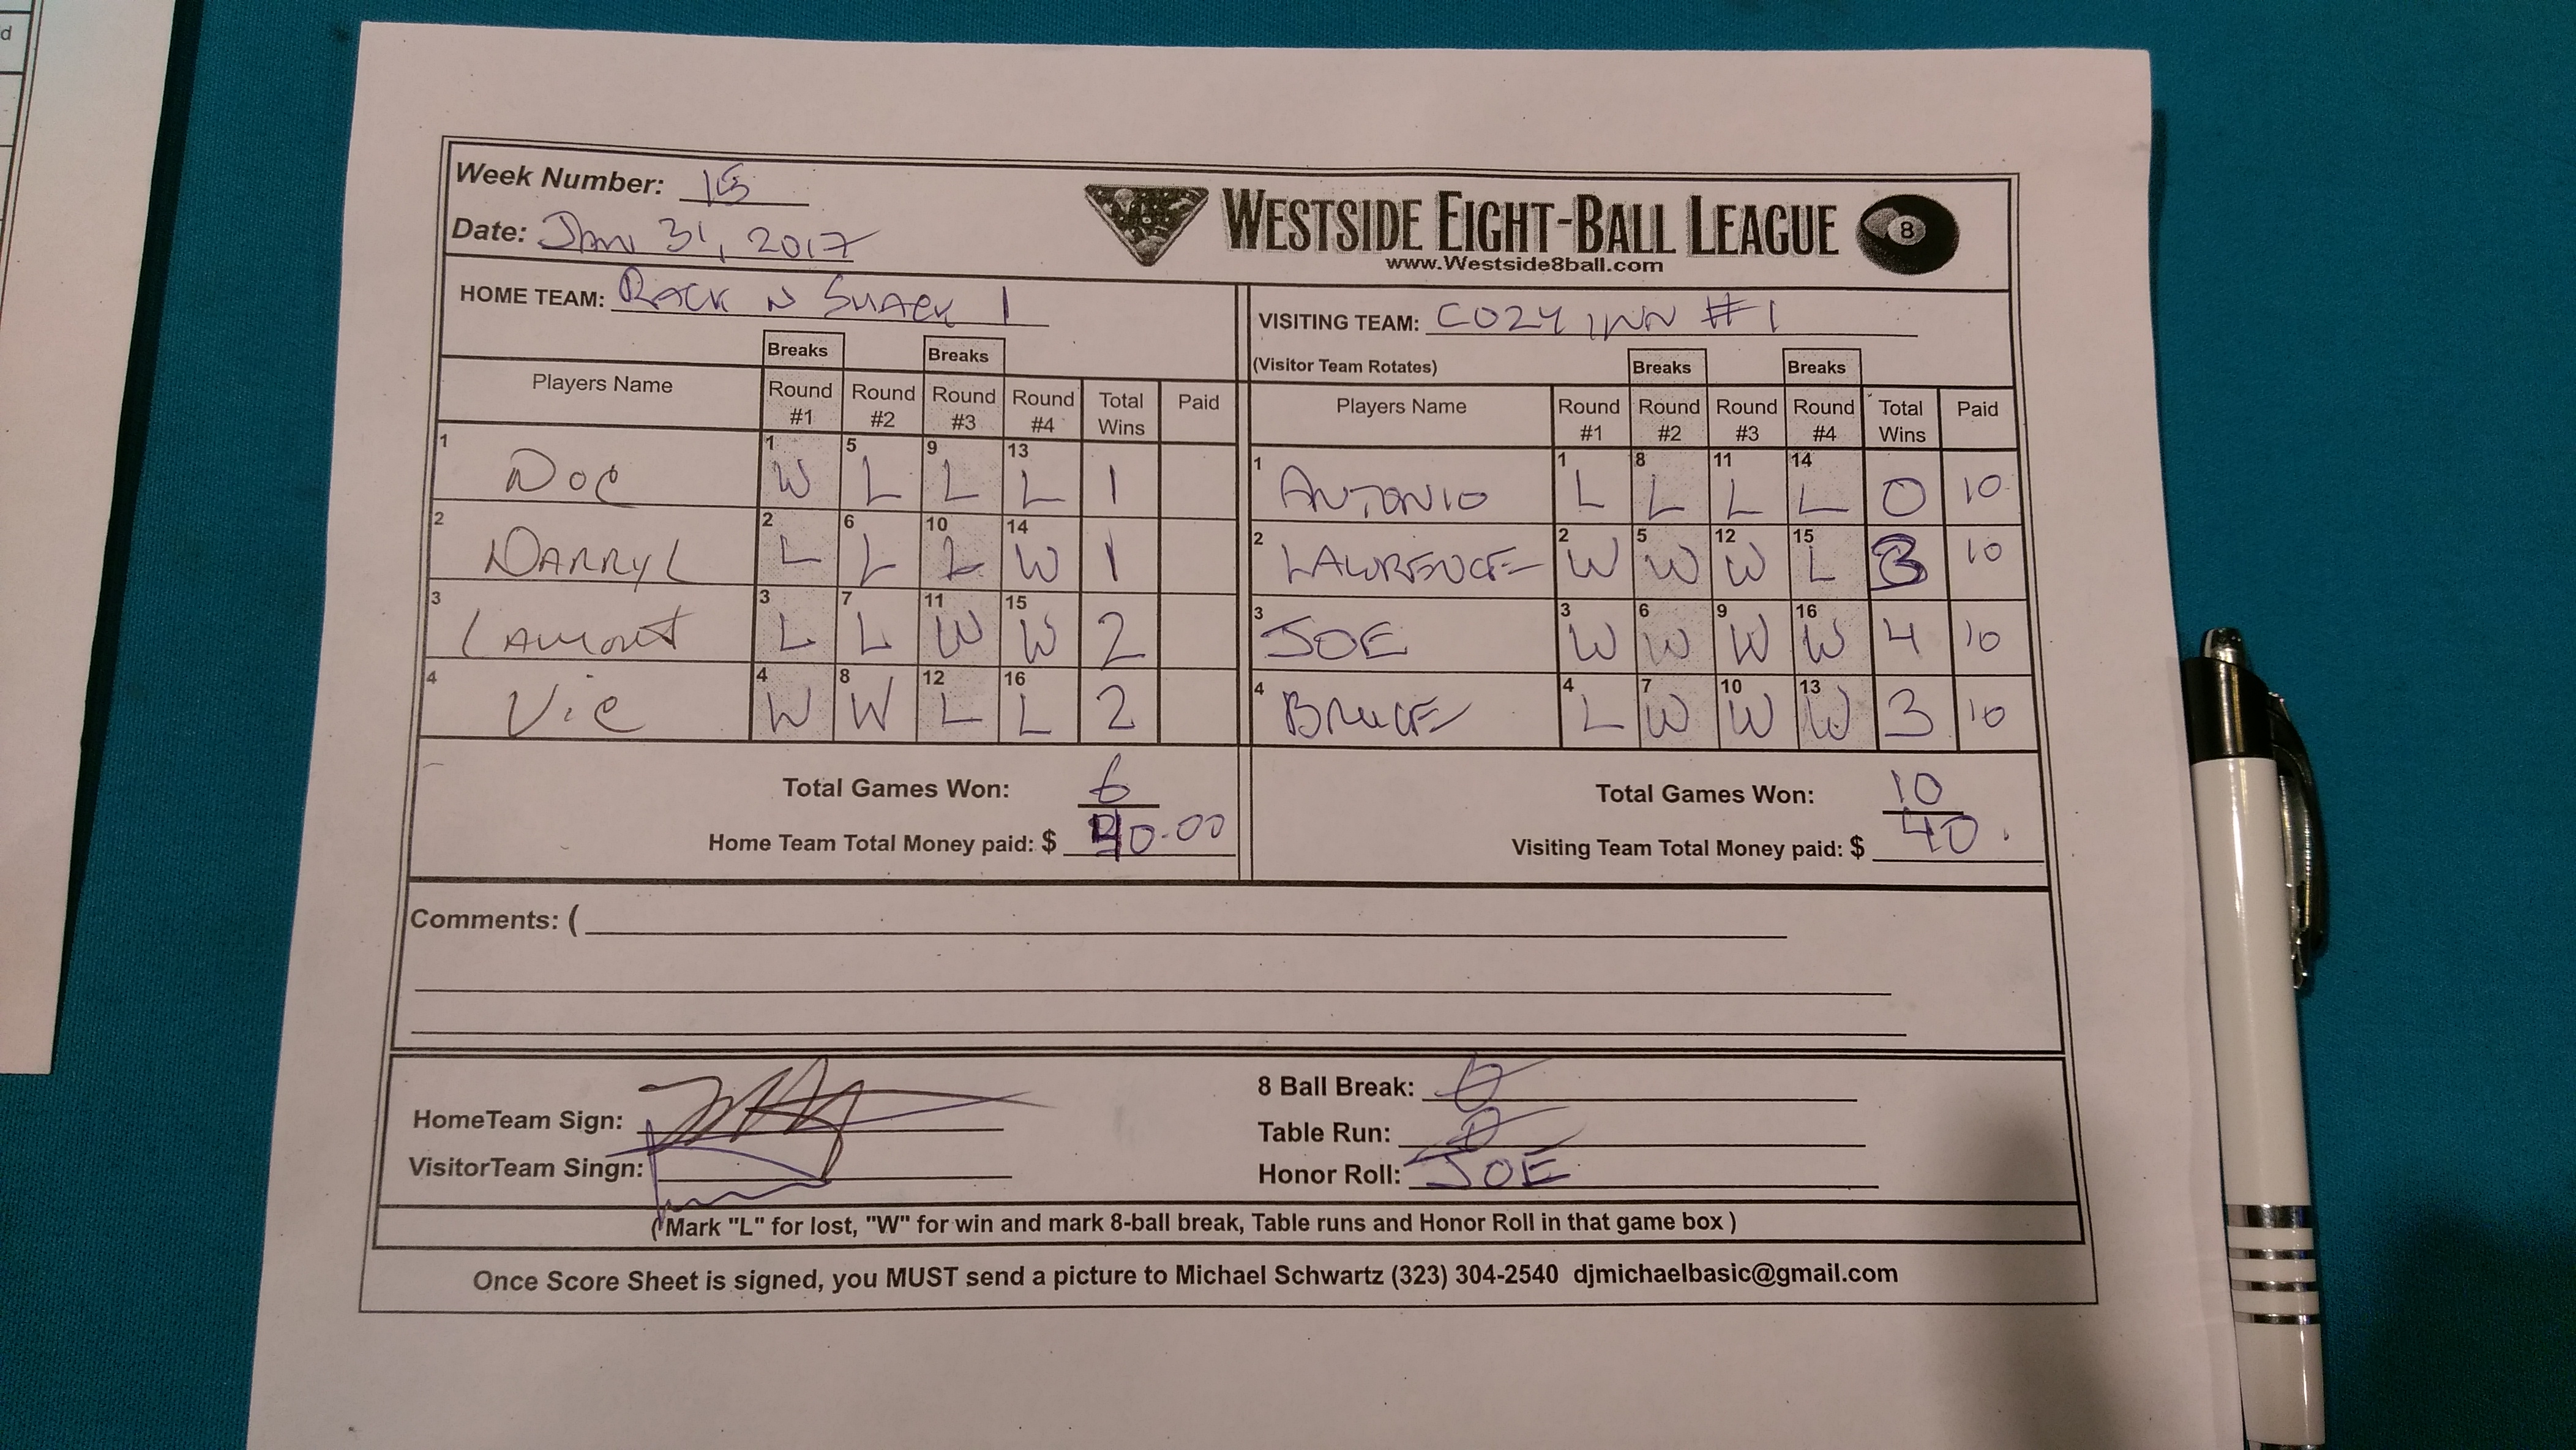 d
Week Number:
Date: Jan 31, 2017
WESTSIDE EIGHT-BALL LEAGUE 8
www.Westside8ball.com
HOME TEAM: RACK N SMACK 1
VISITING TEAM: COZY INN #1
Breaks Breaks
(Visitor Team Rotates) Breaks Breaks
Players Name Round #1 Round #2 Round #3 Round #4 Total Wins Paid
Players Name Round #1 Round #2 Round #3 Round #4 Total Wins Paid
1 Doc 1 W 5 L 9 L 13 L 1
1 ANTONIO 1 L 8 L 11 L 14 L 0 10
2 DARRYL 2 L 6 L 10 L 14 W 1
2 LAWRENCE 2 W 5 W 12 W 15 L 3 10
3 LAMONT 3 L 7 L 11 W 15 W 2
3 JOE 3 W 6 W 9 W 16 W 4 10
4 Vic 4 W 8 W 12 L 16 L 2
4 BRUCE 4 L 7 W 10 W 13 W 3 10
Total Games Won: 6
Total Games Won: 10
Home Team Total Money paid: $ 40.00
Visiting Team Total Money paid: $ 40.
Comments: (
HomeTeam Sign:
VisitorTeam Singn:
8 Ball Break: 0
Table Run: 0
Honor Roll: JOE
( Mark "L" for lost, "W" for win and mark 8-ball break, Table runs and Honor Roll in that game box )
Once Score Sheet is signed, you MUST send a picture to Michael Schwartz (323) 304-2540 djmichaelbasic@gmail.com